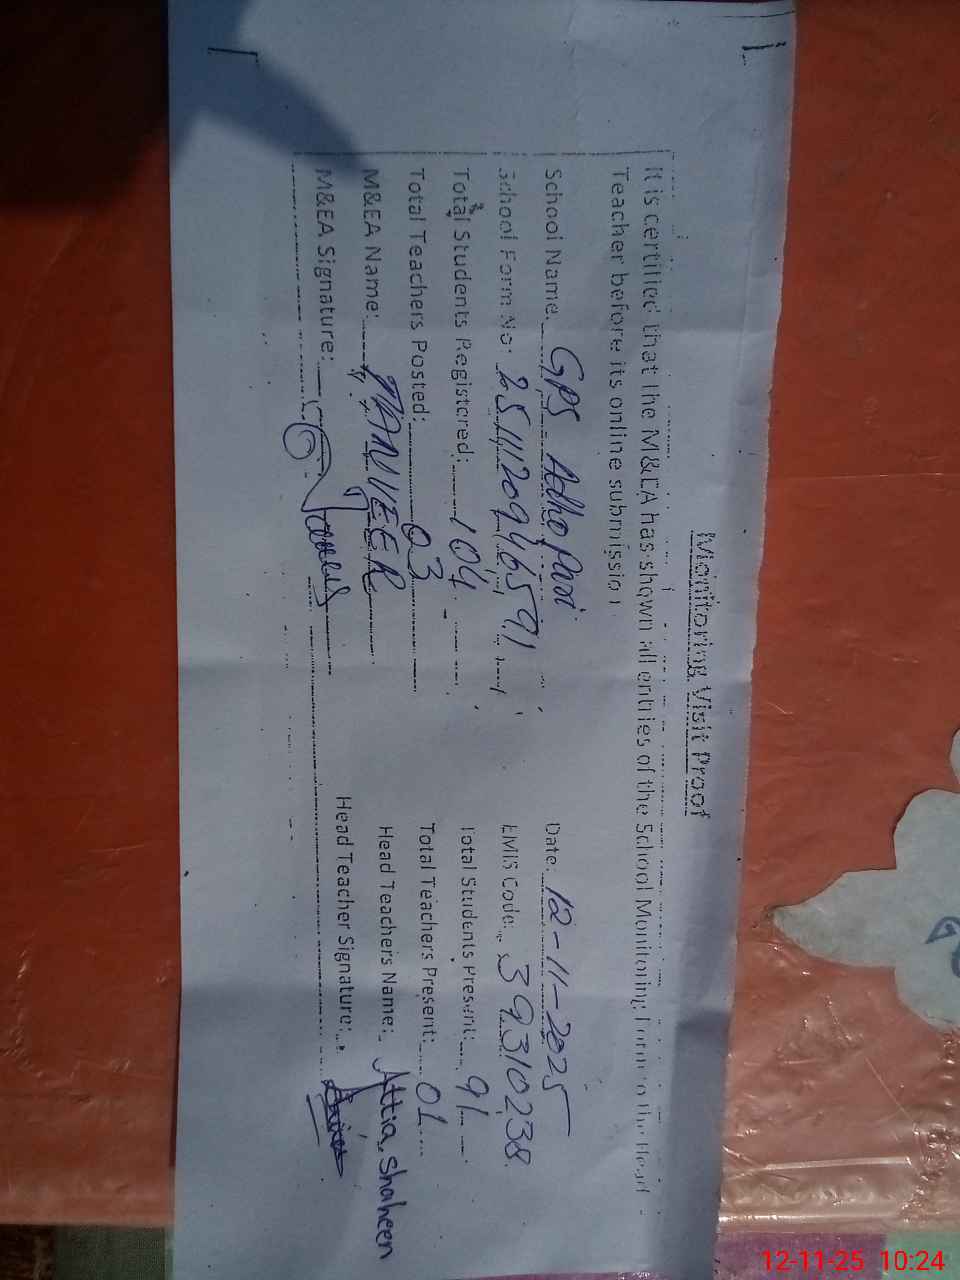 Monitoring Visit Proof
It is certified that the M&EA has shown all entries of the School Monitoring Form to the Head
Teacher before its online submission
School Name: GPS Adho Pavi Date: 12-11-2025
School Form No: 2511120946591 EMIS Code: 39310238
Total Students Registered: 104 Total Students Present: 91
Total Teachers Posted: 03 Total Teachers Present: 01
M&EA Name: TANVEER Head Teachers Name: Attia Shaheen
M&EA Signature: Head Teacher Signature:
12-11-25 10:24